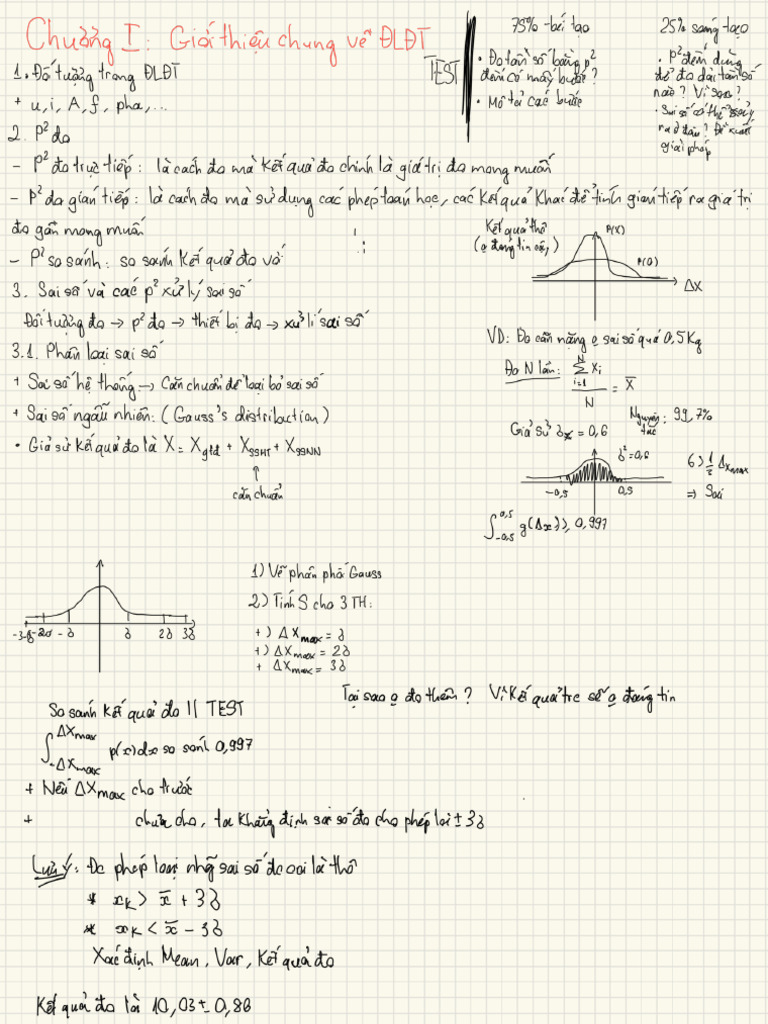 Chương I: Giới thiệu chung về ĐLĐT
1. Đối tượng trong ĐLĐT
+ u, i, A, f, pha,...
2. P² đo
TEST
75% - tái tạo
• Đo tần số bằng p²
đếm có mấy bước?
• Mô tả các bước
25% sáng tạo
• P² đếm dùng
để đo dải tần số
nào? Vì sao?
• Sai số có thể xảy
ra ở đâu? Đề xuất
giải pháp
- P² đo trực tiếp: là cách đo mà kết quả đo chính là giá trị đo mong muốn
- P² đo gián tiếp: là cách đo mà sử dụng các phép toán học, các kết quả khác để tính gián tiếp ra giá trị
đo gần mong muốn
- P² so sánh: so sánh kết quả đo với
3. Sai số và các p² xử lý sai số
Đối tượng đo → p² đo → thiết bị đo → xử lí sai số
3.1. Phân loại sai số
+ Sai số hệ thống → Cần chuẩn để loại bỏ sai số
+ Sai số ngẫu nhiên: (Gauss's distribution)
• Giả sử kết quả đo là X = Xgtđ + XSSHT + XSSNN
↑
cần chuẩn
Kết quả thô
(o đáng tin cậy)
P(X)
P(Q)
ΔX
VD: Đo cân nặng o sai số quá 0,5 Kg
Đo N lần: ∑ Xi / N = X̄
N
i=1
Nguyên tắc: 99,7%
Giả sử δx = 0,6
δ² = 0,6
-0,5 0,5
6 > 1/3 ΔXmax
⇒ Sai
∫ -0,5 0,5 g(Δx) ≥ 0,997
-3δ -2δ -δ δ 2δ 3δ
1) Vẽ phân phối Gauss
2) Tính S cho 3 TH:
+) ΔXmax = δ
+) ΔXmax = 2δ
+ ΔXmax = 3δ
So sánh kết quả đo || TEST
Tại sao o đo thêm? Vì kết quả trc sẽ o đáng tin
∫ -ΔXmax ΔXmax p(x)dx so sánh 0,997
+ Nếu ΔXmax cho trước
+ chưa cho, ta khẳng định sai số đo cho phép là ±3δ
Lưu ý: Đc phép loại nhg sai số đc coi là thô
* xk > x̄ + 3δ
* xk < x̄ - 3δ
Xác định Mean, Var, Kết quả đo
Kết quả đo là 10,03 ± 0,86